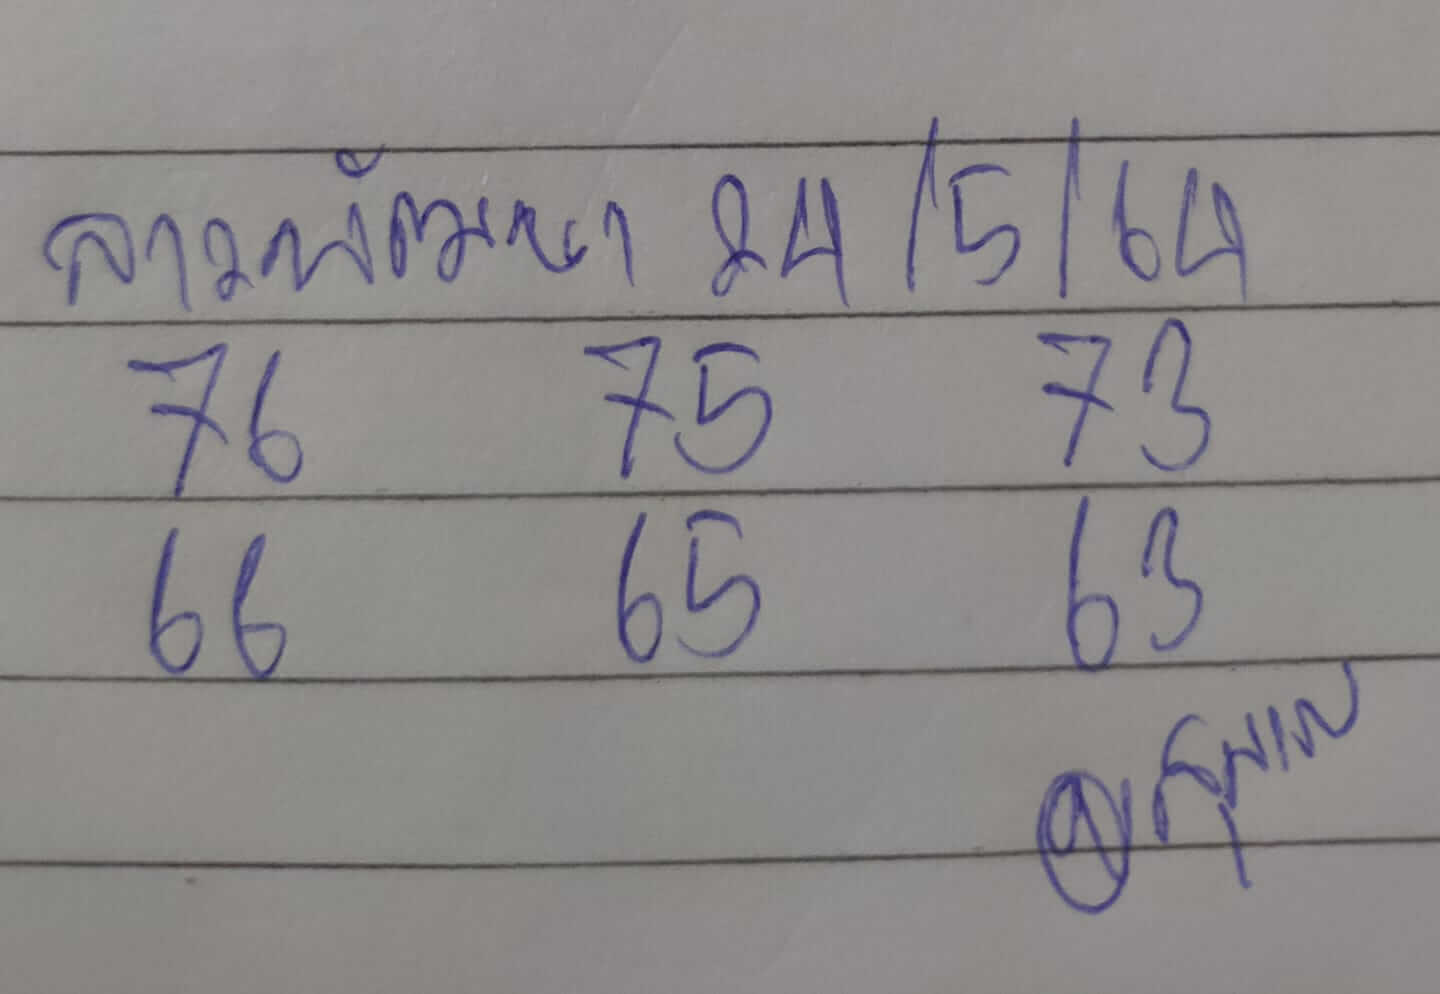 ลาวพัฒนา 24/5/64
76 75 73
66 65 63